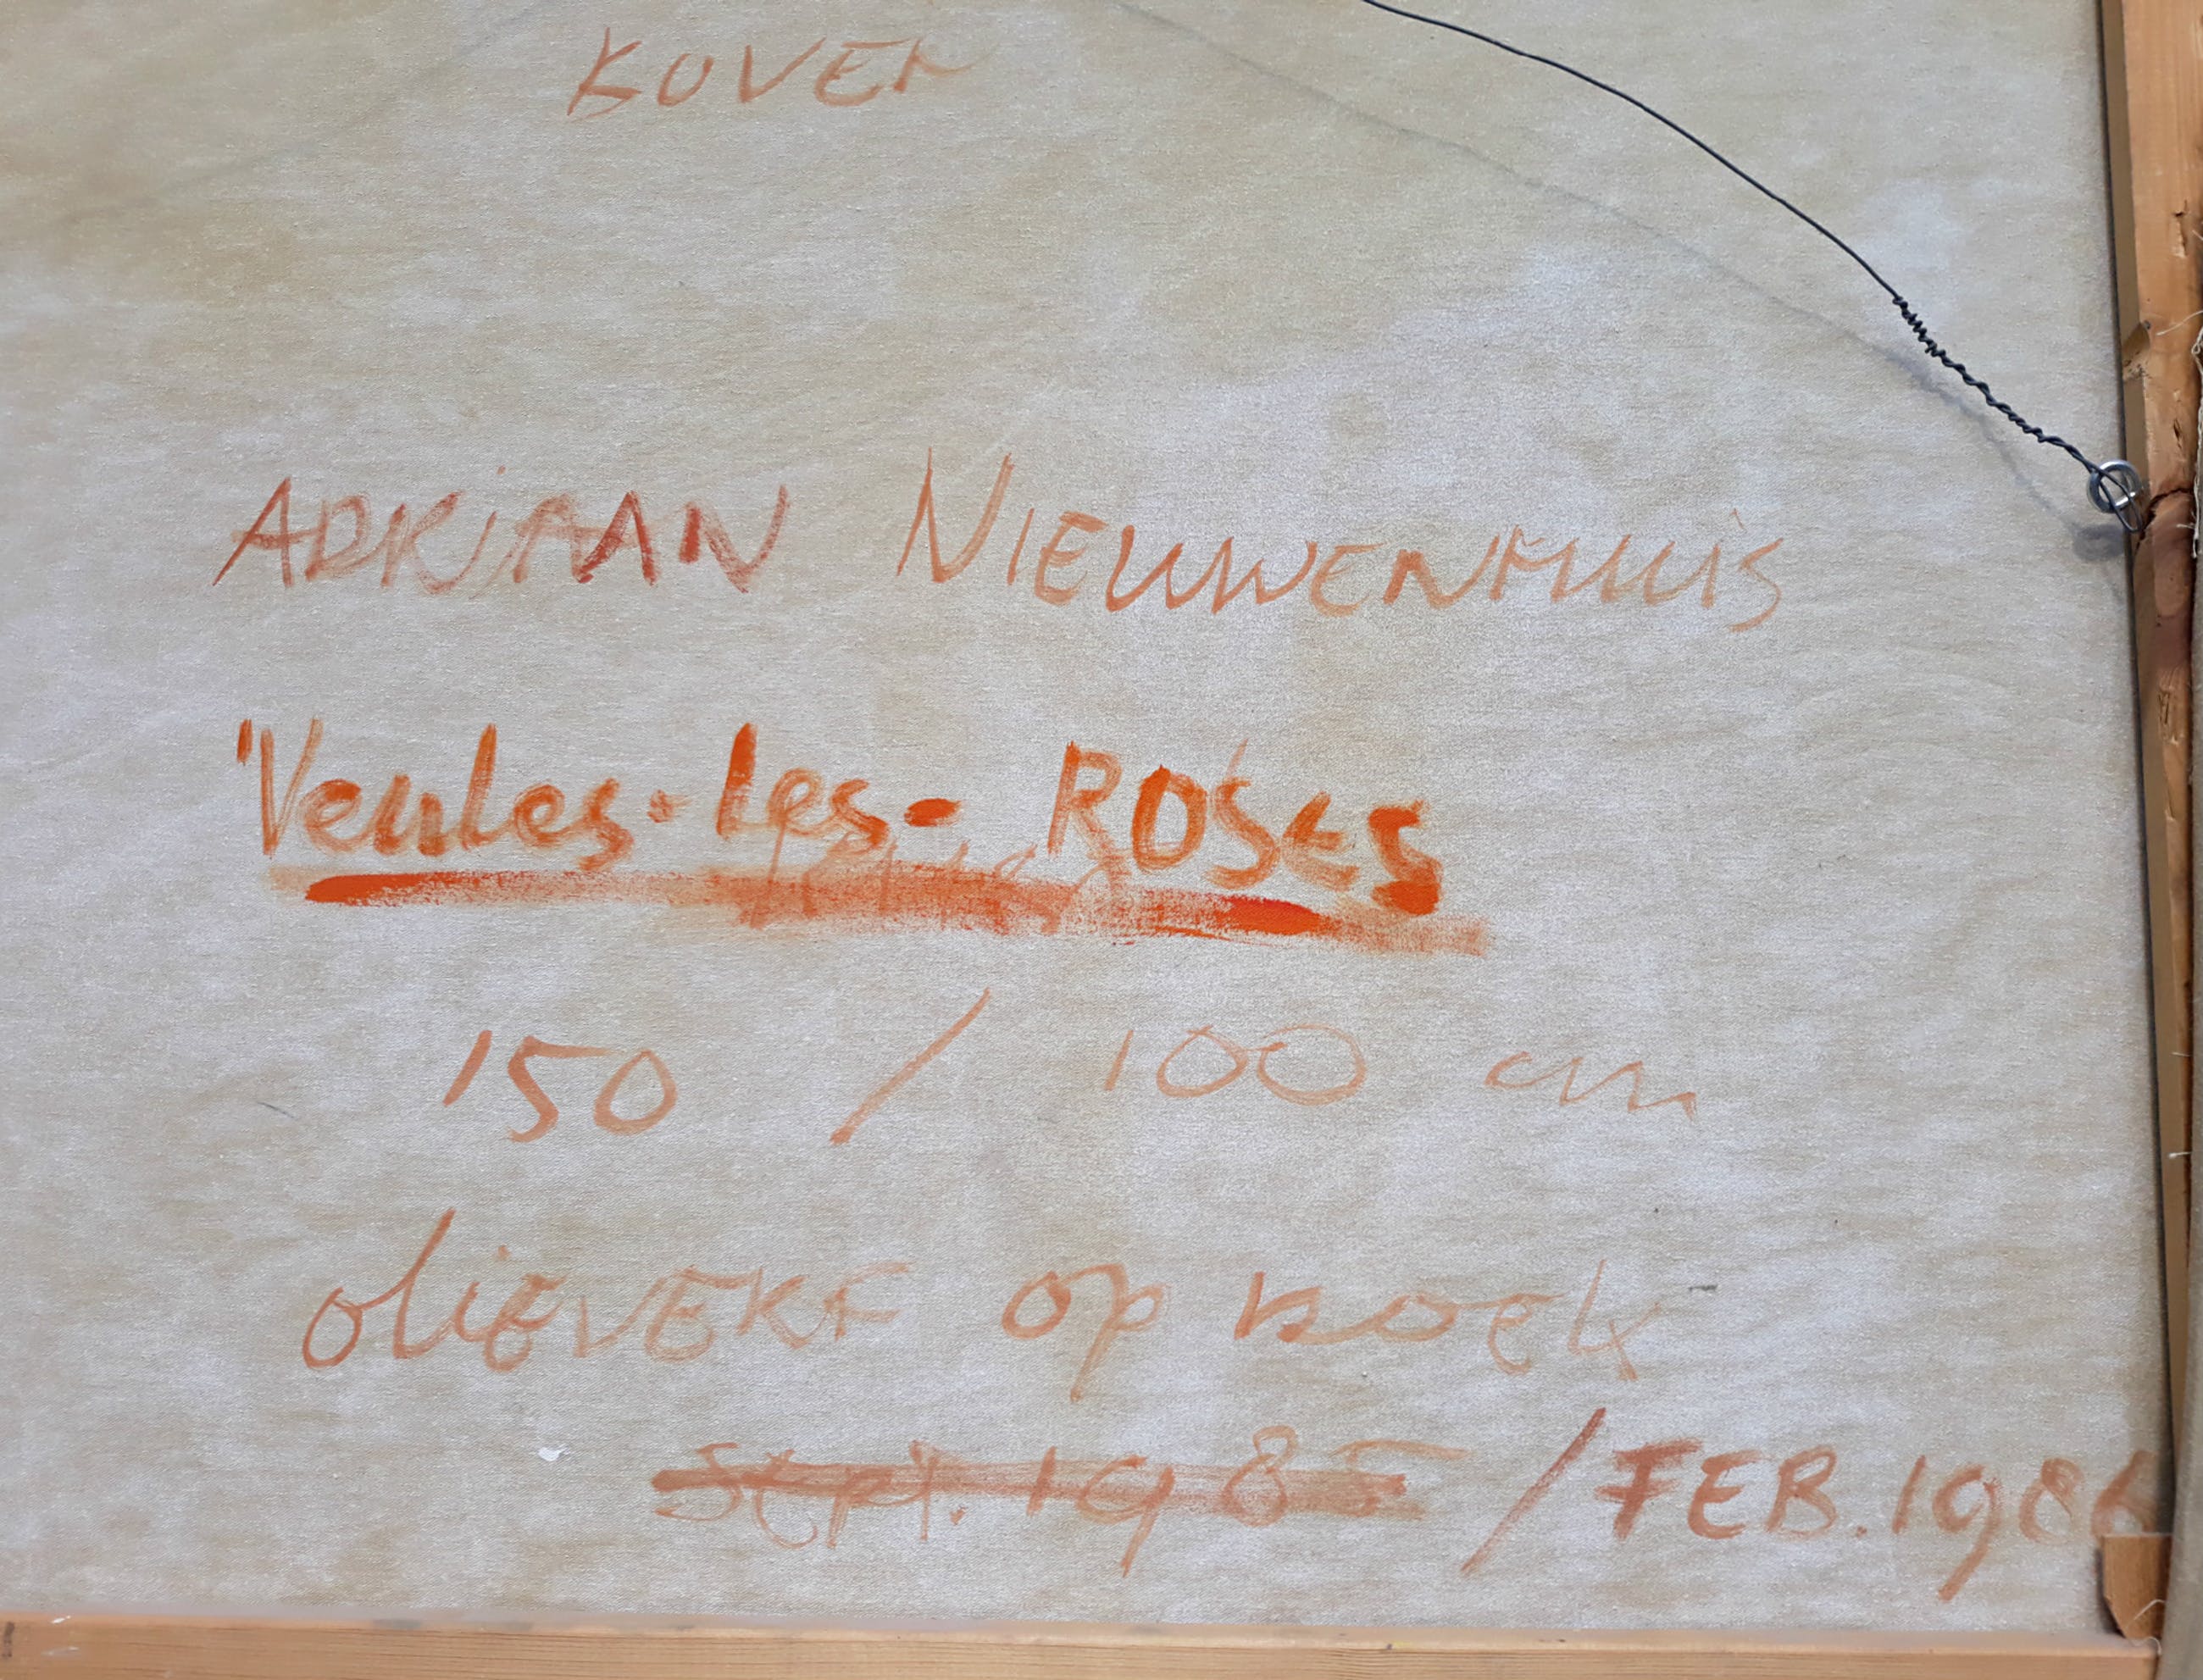 BOVEN
ADRiAAN NIEUWENHUiS
'Veules-les-ROSES
150 / 100 cm
olieVERF op doek
Sept. 1985 / FEB. 1986